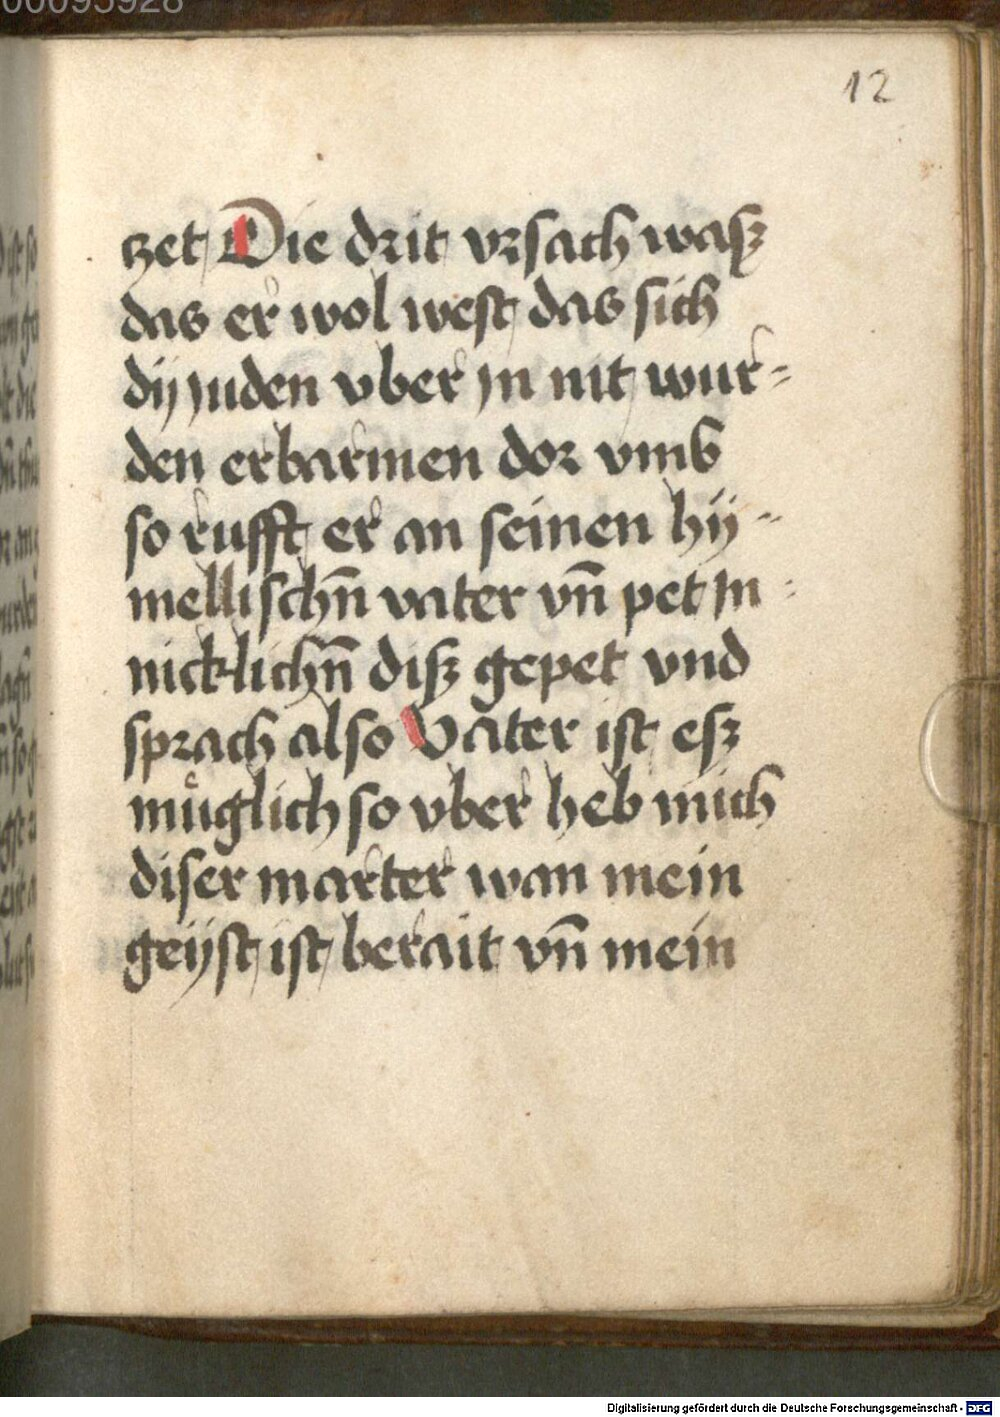 00095928
12
tzet Die drit vrsach wasz
das er wol west das sich
dÿ Juden vber jn nit wur-
den erbarmen dor vmb
so rufft er an seinen hÿ-
mellischñ vater vñ pet jn-
nicklichñ disz gepet vnd
sprach also Vater ist esz
muͦglich so vber heb mich
diser marter wan mein
geÿst ist berait vñ mein
Digitalisierung gefördert durch die Deutsche Forschungsgemeinschaft - DFG